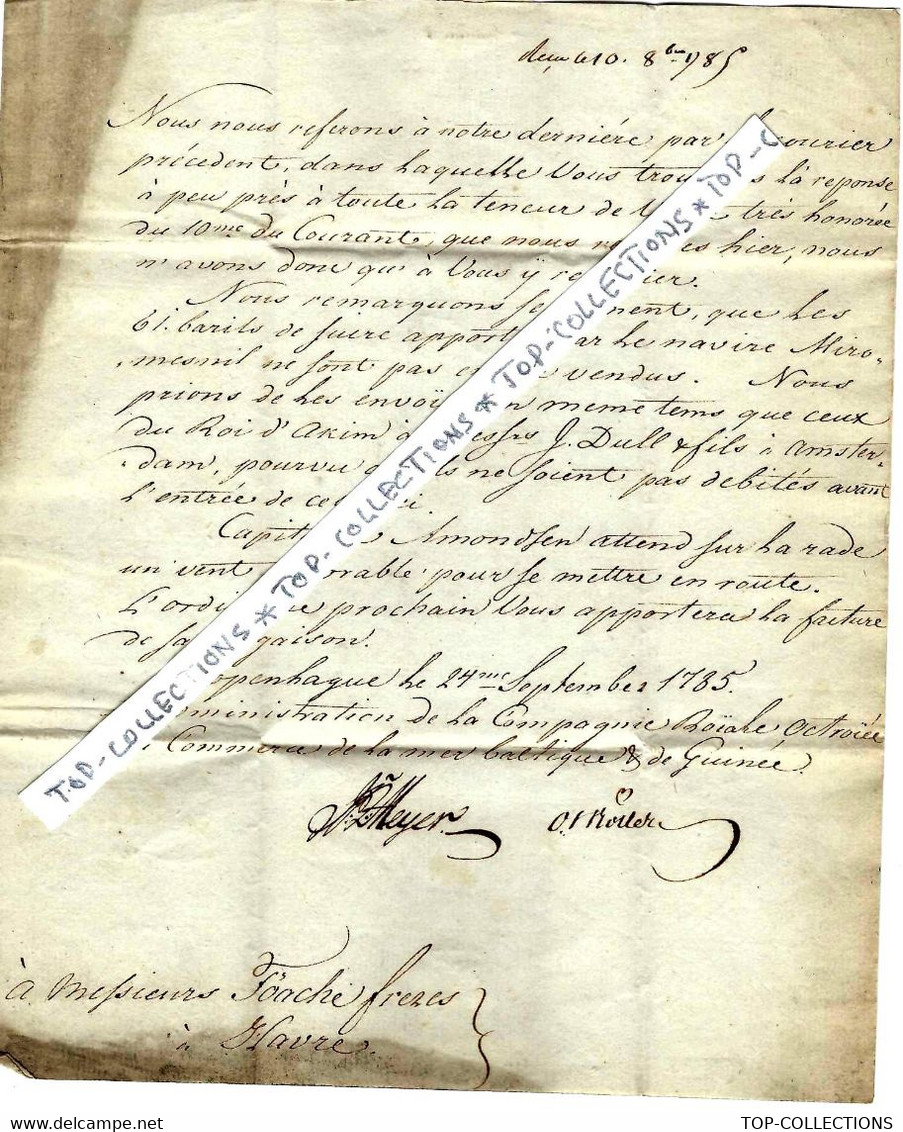 le 10. 8bre 1785
Nous nous referons à notre derniére par courier
précedent, dans laquelle Vous la reponse
à peu près à toute la teneur de très honorée
du 10me du Courant, que nous hier, nous
n'avons donc qu'à Vous ÿ
Nous remarquons que les
61. barils de sucre le navire Miro-
mesnil ne sont pas vendus. Nous
prions de les meme tems que ceux
du Roi d'Akim à J. Dull & fils à Amster-
dam, pourvu ne soient pas debités avant
l'entrée de
Amondsen attend sur la rade
un vent pour se mettre en route.
prochain Vous apportera la facture
de
le 24me September 1785.
de la Compagnie Roïale Octroïée
Commerce de la mer baltique & de Guinée.
Meyer.
à Messieurs Föache freres
à Havre.
TOP-COLLECTIONS * TOP-COLLECTIONS * TOP-COLLECTIONS * TOP-COLLECTIONS * TOP-C
TOP-COLLECTIONS